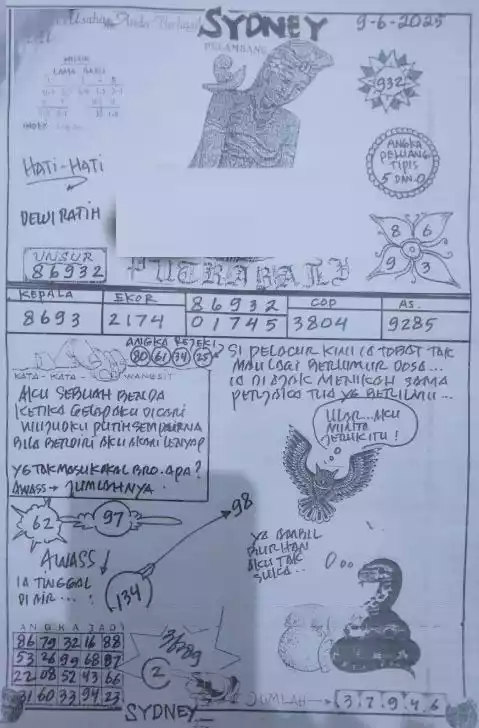 SYDNEY
9-6-2025
PELAMBANG
932
HATI-HATI
ANGKA
PELUANG
TIPIS
5 DAN 0
DEWI RATIH
8 6
9 3
UNSUR
86932
PUTRA BALI
KEPALA EKOR 86932 COP AS.
8693 2174 01745 3804 9285
ANGKA REJEKI
80 61 74 25
KATA-KATA WANGSIT
AKU SEBUAH BENDA
KETIKA GELAP AKU DICARI
WUJUDKU PUTIH SEMPURNA
BILA BERDIRI AKU AKAN LENYAP
YG TAK MASUK AKAL BRO. APA?
AWASS → JUMLAHNYA.
SI PELACUR KINI IA TOBAT TAK
MAU LAGI BERLUMUR DOSA...
IA DI AJAK MENIKAH SAMA
PERJAKA TUA YG BERILMU...
ULAR...AKU
MINTA
JERUKITU!
62
97
98
AWASS
IA TINGGAL
DI AIR....:
134
YA AMBIL
AKU TAK
SUKA..
ANGKA JADI
86 79 32 16 88
53 26 99 68 97
22 08 52 43 66
31 60 33 94 23
2
JUMLAH → 37946
SYDNEY